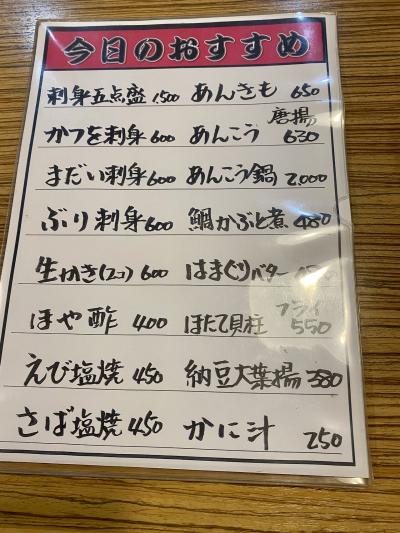 今日のおすすめ
刺身五点盛 1,500 あんきも 650
かつを刺身 600 あんこう 唐揚 630
まだい刺身 600 あんこう鍋 2,000
ぶり刺身 600 鯛かぶと煮 480
生かき(2コ) 600 はまぐりバター
ほや酢 400 ほたて貝柱 フライ 550
えび塩焼 450 納豆大葉揚 380
さば塩焼 450 かに汁 250